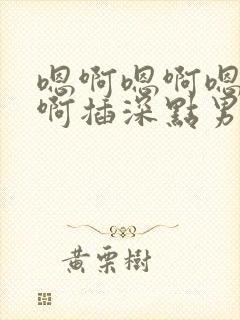 嗯啊嗯啊嗯
啊插深點男
黃栗樹